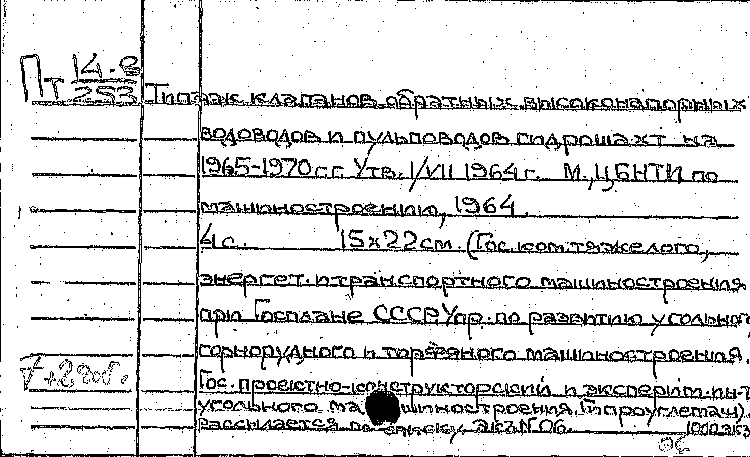 Пт 14-8
253
Типаж клапанов обратных высоконапорных
водоводов и пульповодов гидрошахт на
1965-1970 г.г. Утв. 1/VII 1964 г. М., ЦБНТИ по
машиностроению, 1964.
4 с. 15х22 см. (Гос. ком. тяжелого,
энергет. и транспортного машиностроения
при Госплане СССР. Упр. по развитию угольного,
горнорудного и торфяного машиностроения.
Гос. проектно-конструкторский и эксперим. ин-т
угольного машиностроения. Гипроуглемаш).
Рассылается по списку. Экз. № 06.